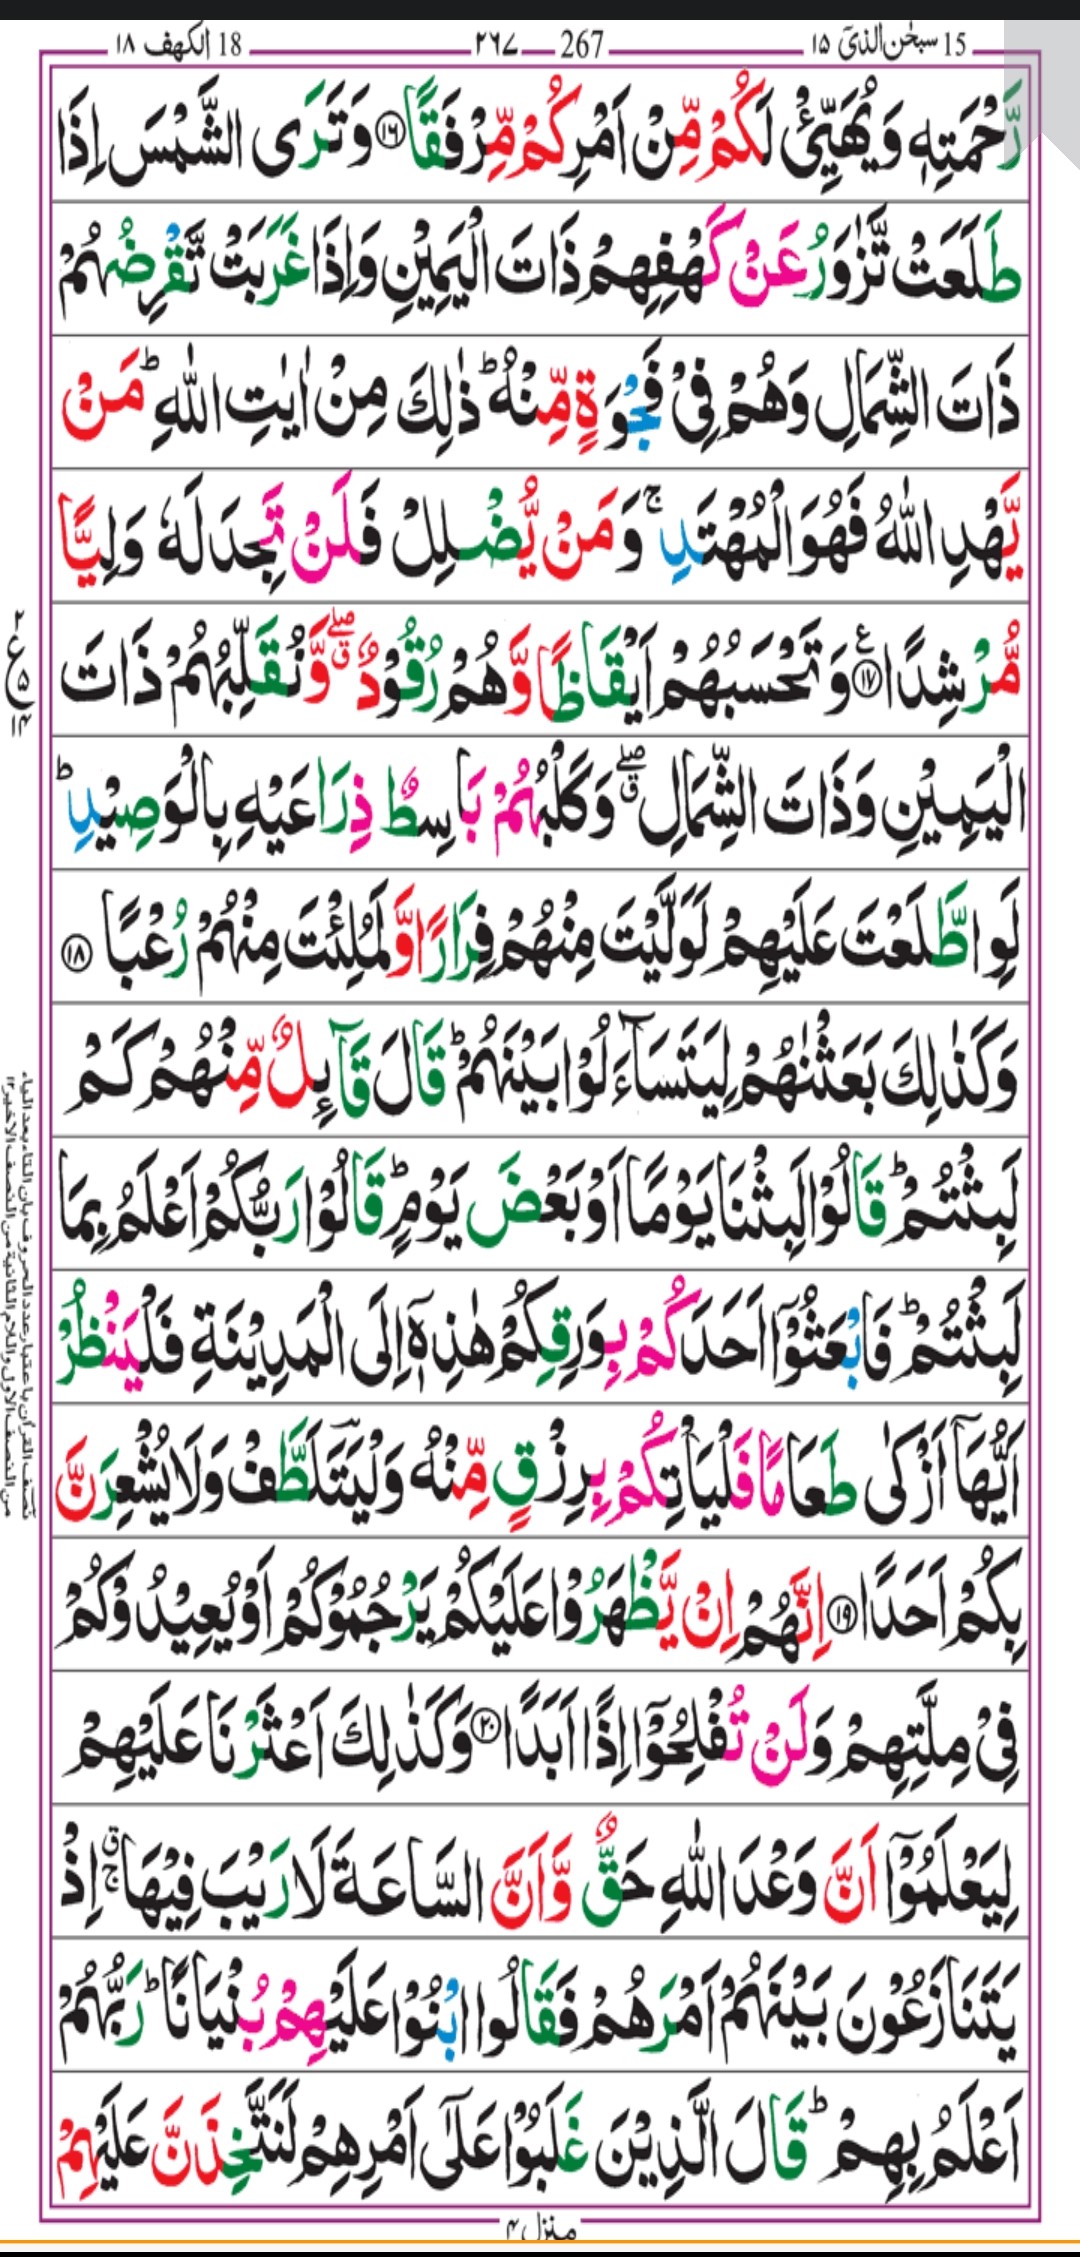 15 سبحٰن الذیٓ ۱۵ 267 ۲۶۷ 18 الکھف ۱۸
رَّحْمَتِهٖ وَيُهَيِّئْ لَكُمْ مِّنْ اَمْرِكُمْ مِّرْفَقًا ۝۱۶ وَتَرَى الشَّمْسَ اِذَا
طَلَعَتْ تَّزٰوَرُ عَنْ كَهْفِهِمْ ذَاتَ الْيَمِيْنِ وَاِذَا غَرَبَتْ تَّقْرِضُهُمْ
ذَاتَ الشِّمَالِ وَهُمْ فِيْ فَجْوَةٍ مِّنْهُ ؕ ذٰلِكَ مِنْ اٰيٰتِ اللّٰهِ ؕ مَنْ
يَّهْدِ اللّٰهُ فَهُوَ الْمُهْتَدِ ۚ وَمَنْ يُّضْلِلْ فَلَنْ تَجِدَ لَهٗ وَلِيًّا
مُّرْشِدًا ۝۱۷ ع وَتَحْسَبُهُمْ اَيْقَاظًا وَّهُمْ رُقُوْدٌ ۖۗ وَّنُقَلِّبُهُمْ ذَاتَ
الْيَمِيْنِ وَذَاتَ الشِّمَالِ ۖۗ وَكَلْبُهُمْ بَاسِطٌ ذِرَاعَيْهِ بِالْوَصِيْدِ ؕ
لَوِ اطَّلَعْتَ عَلَيْهِمْ لَوَلَّيْتَ مِنْهُمْ فِرَارًا وَّلَمُلِئْتَ مِنْهُمْ رُعْبًا ۝۱۸
وَكَذٰلِكَ بَعَثْنٰهُمْ لِيَتَسَآءَلُوْا بَيْنَهُمْ ؕ قَالَ قَآئِلٌ مِّنْهُمْ كَمْ
لَبِثْتُمْ ؕ قَالُوْا لَبِثْنَا يَوْمًا اَوْ بَعْضَ يَوْمٍ ؕ قَالُوْا رَبُّكُمْ اَعْلَمُ بِمَا
لَبِثْتُمْ ؕ فَابْعَثُوْٓا اَحَدَكُمْ بِوَرِقِكُمْ هٰذِهٖٓ اِلَى الْمَدِيْنَةِ فَلْيَنْظُرْ
اَيُّهَآ اَزْكٰى طَعَامًا فَلْيَاْتِكُمْ بِرِزْقٍ مِّنْهُ وَلْيَتَلَطَّفْ وَلَا يُشْعِرَنَّ
بِكُمْ اَحَدًا ۝۱۹ اِنَّهُمْ اِنْ يَّظْهَرُوْا عَلَيْكُمْ يَرْجُمُوْكُمْ اَوْ يُعِيْدُوْكُمْ
فِيْ مِلَّتِهِمْ وَلَنْ تُفْلِحُوْٓا اِذًا اَبَدًا ۝۲۰ وَكَذٰلِكَ اَعْثَرْنَا عَلَيْهِمْ
لِيَعْلَمُوْٓا اَنَّ وَعْدَ اللّٰهِ حَقٌّ وَّاَنَّ السَّاعَةَ لَا رَيْبَ فِيْهَا ۚۗ اِذْ
يَتَنَازَعُوْنَ بَيْنَهُمْ اَمْرَهُمْ فَقَالُوا ابْنُوْا عَلَيْهِمْ بُنْيَانًا ؕ رَبُّهُمْ
اَعْلَمُ بِهِمْ ؕ قَالَ الَّذِيْنَ غَلَبُوْا عَلٰٓى اَمْرِهِمْ لَنَتَّخِذَنَّ عَلَيْهِمْ
منزل ۴